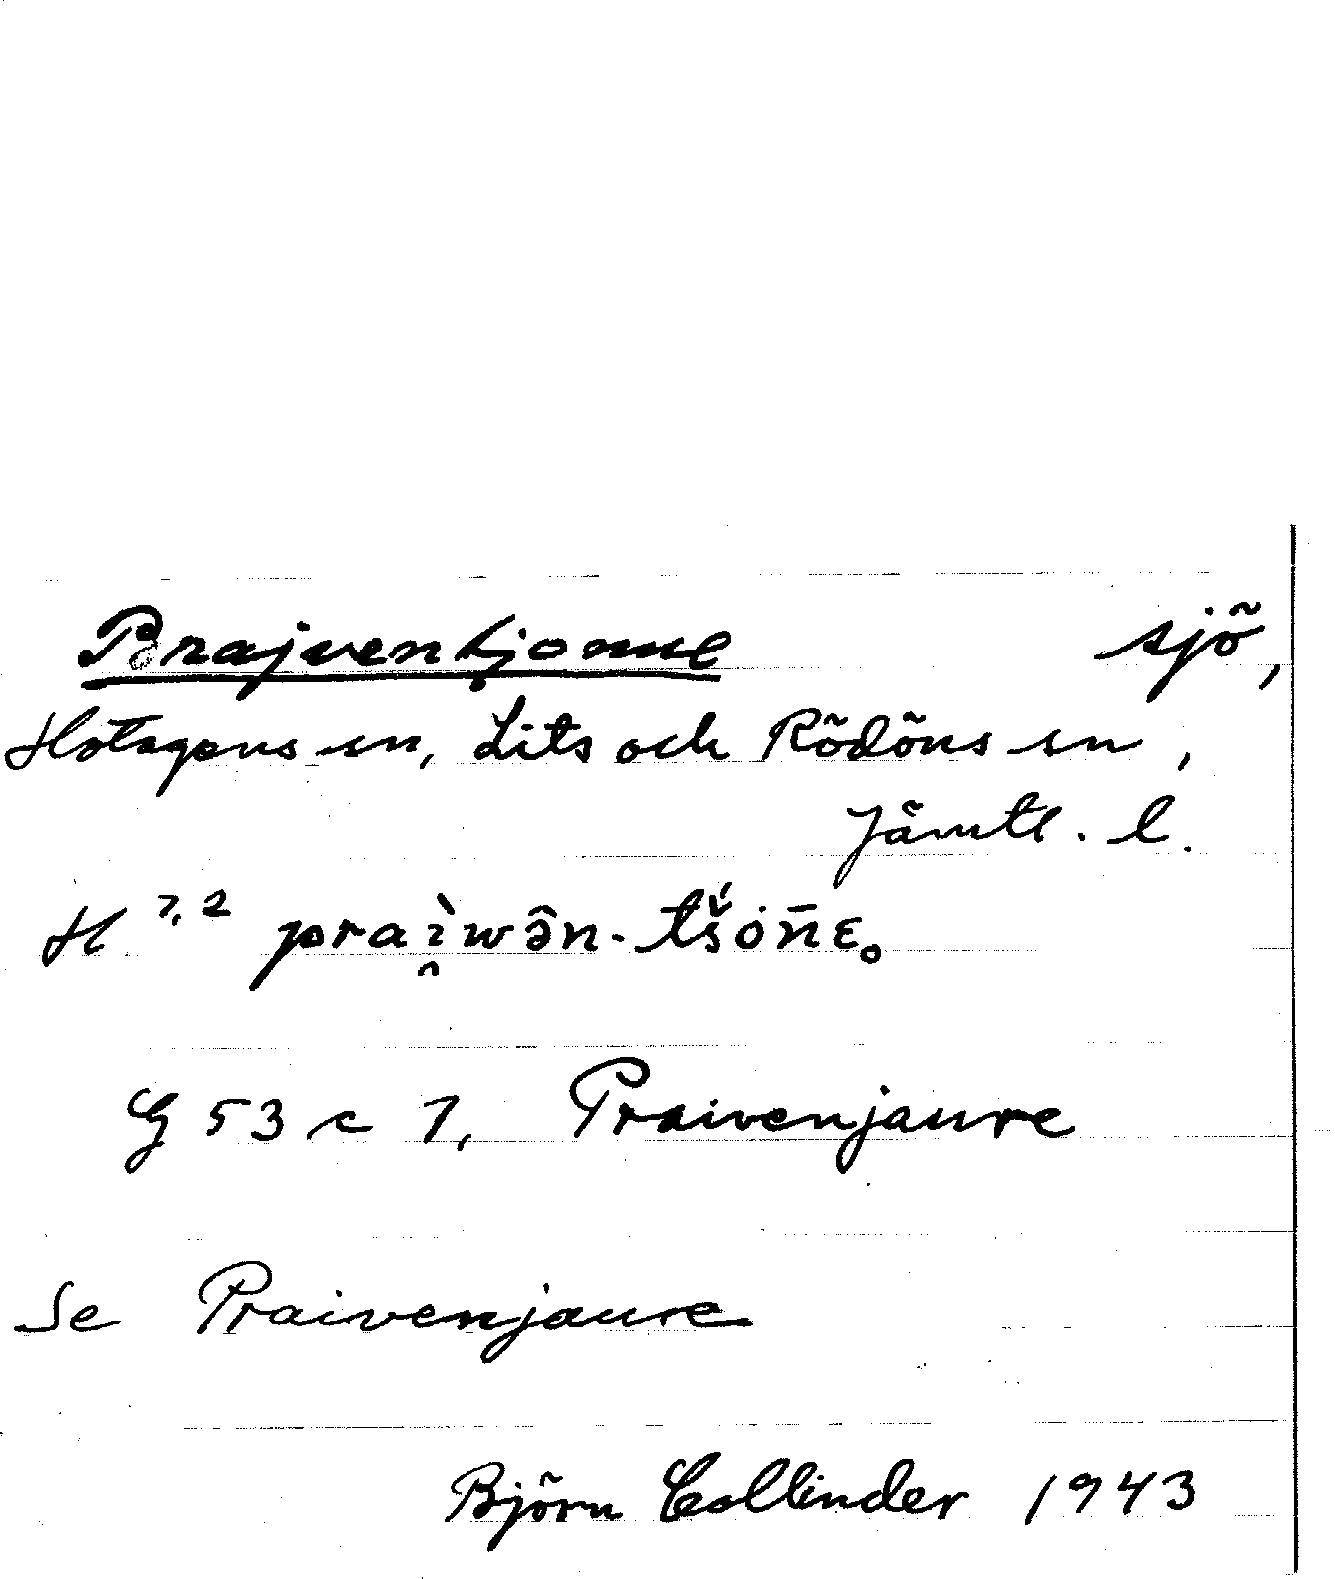 Brajventjonne sjö,
Hotagens sn, Lits och Rödöns sn,
Jämtl. l.
H 7, 2 prai̯wə̑n-tšǒn̄ɛ˳
G 53 c 7, Praivenjaure
Se Praivenjaure
Björn Collinder 1943